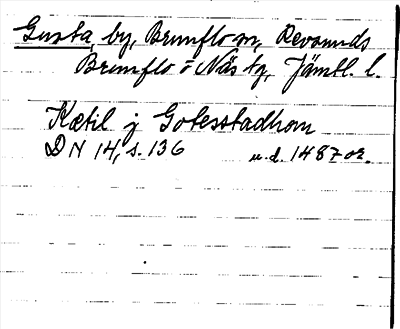 Gusta, by, Brunflo sn, Revsunds
Brunflo o Näs tg, Jämtl. l.
Ketil j Gotesstadhom
DN 14, s. 136 u.d. 1487 or.